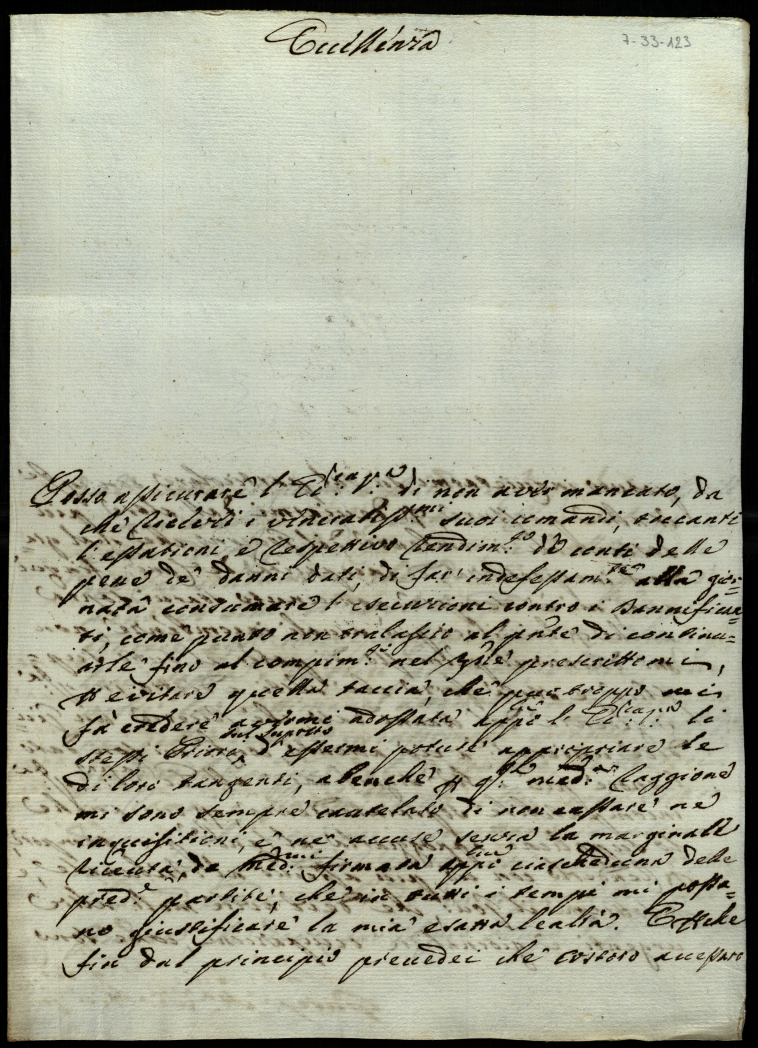 Eccellenza
7-33-123
Posso assicurare l'Ecc.za V.ra di non aver mancato, da
che ricevei i veneratiss.mi suoi comandi, toccanti
l'esattioni, e respettivo rendim.to de conti delle
pene de' danni dati, di far indefessam.te alla gior=
nata consumare l'esecuzioni contro i Dannifican=
ti, come punto non tralascio al pnte di continu=
arle fino al compim.to nel prescrittomi,
evitare quella taccia, che purtroppo mi
fà credere avermi adossata appo l'Ecc.za V.ra li
stessi sul suposto d'essermi potuto appropriare le
di loro tangenti, abenche p q.ta med.ma Raggione
mi sono sempre cautelato di non cassare ne
inquisitioni, e ne accuse senza la marginale
ricevuta da med.mi firmata ciascheduna delle
pred.e partite, che in tutti i tempi mi possa=
no giustificare la mia esatta lealtà.
fin dal principio prevedei che costoro